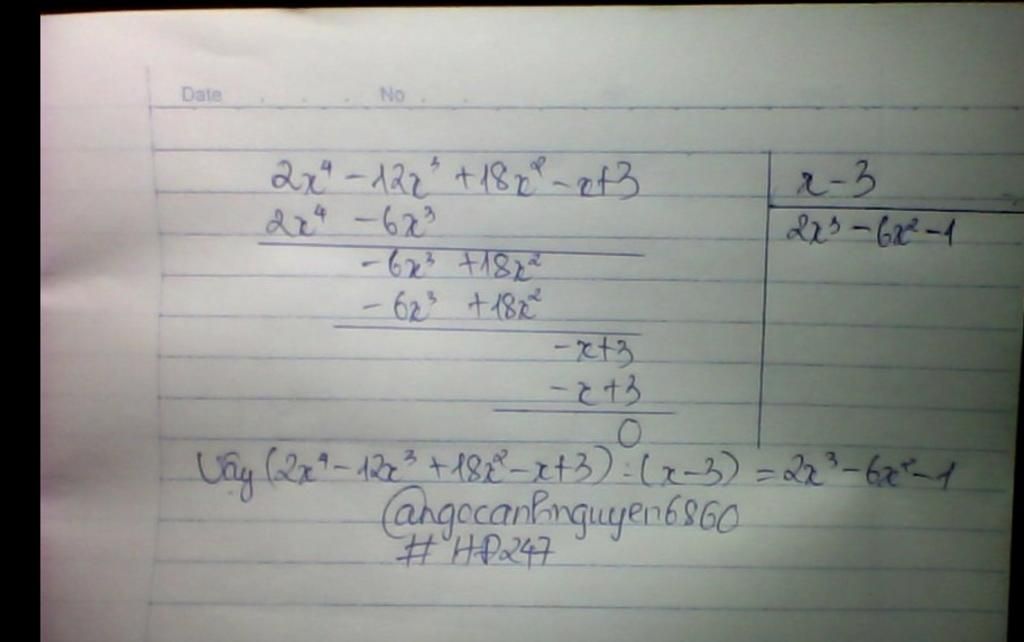 Date No
2x⁴ - 12x³ + 18x² - x + 3 x - 3
2x⁴ - 6x³ 2x³ - 6x² - 1
- 6x³ + 18x²
- 6x³ + 18x²
- x + 3
- x + 3
0
Vậy (2x⁴ - 12x³ + 18x² - x + 3) : (x - 3) = 2x³ - 6x² - 1
@ngocanhnguyen6860
# HĐ247